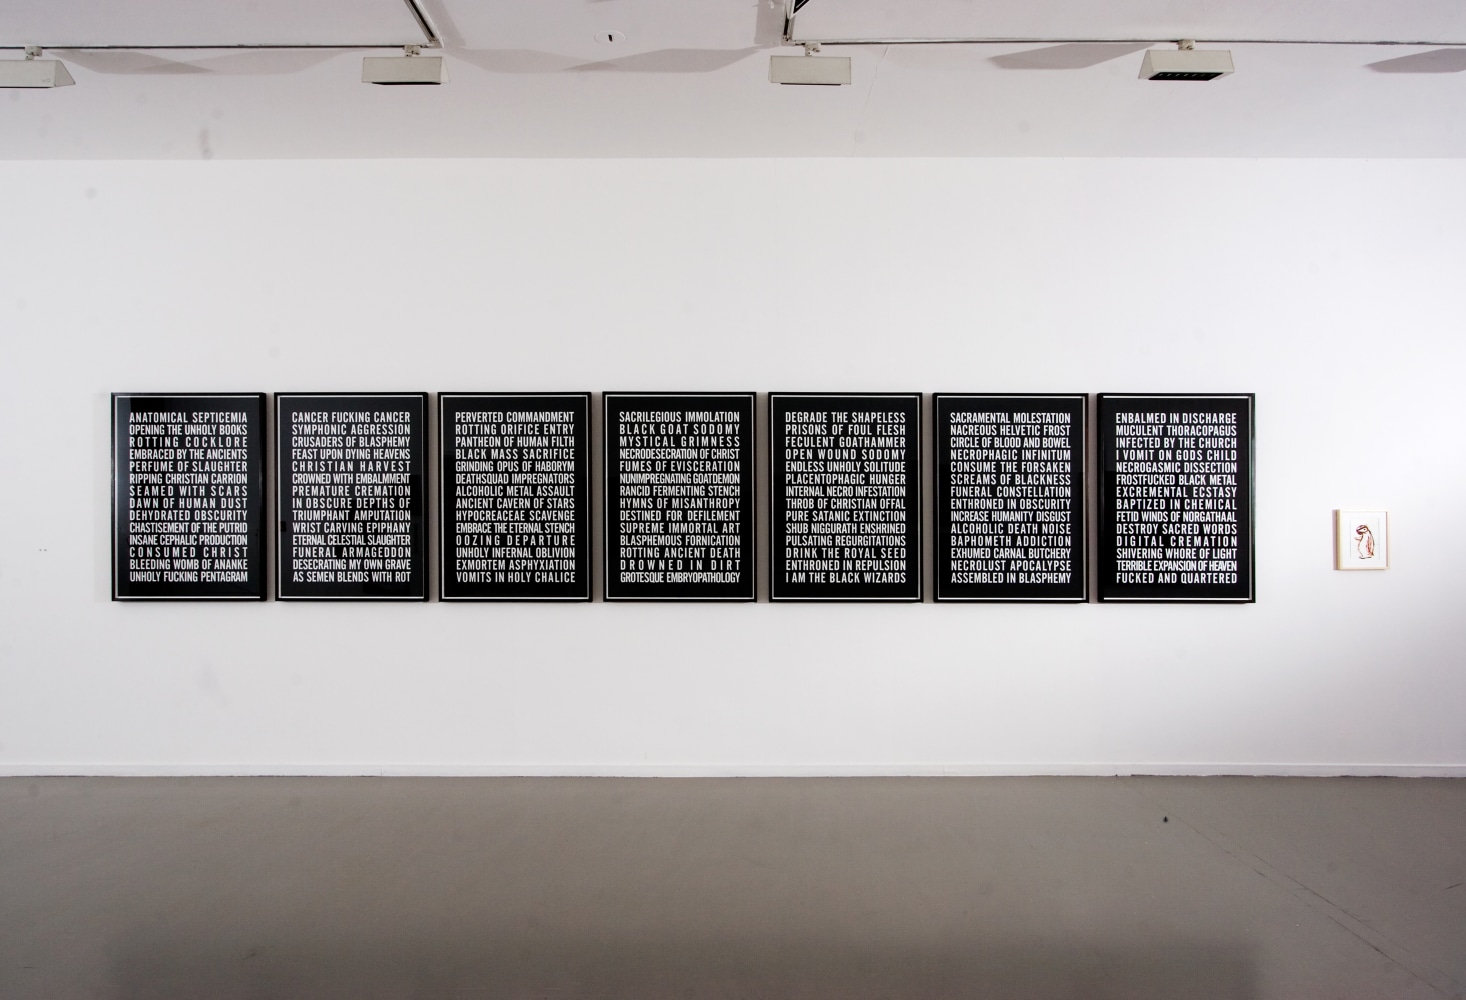 ANATOMICAL SEPTICEMIA
OPENING THE UNHOLY BOOKS
ROTTING COCKLORE
EMBRACED BY THE ANCIENTS
PERFUME OF SLAUGHTER
RIPPING CHRISTIAN CARRION
SEAMED WITH SCARS
DAWN OF HUMAN DUST
DEHYDRATED OBSCURITY
CHASTISEMENT OF THE PUTRID
INSANE CEPHALIC PRODUCTION
CONSUMED CHRIST
BLEEDING WOMB OF ANANKE
UNHOLY FUCKING PENTAGRAM
CANCER FUCKING CANCER
SYMPHONIC AGGRESSION
CRUSADERS OF BLASPHEMY
FEAST UPON DYING HEAVENS
CHRISTIAN HARVEST
CROWNED WITH EMBALMMENT
PREMATURE CREMATION
IN OBSCURE DEPTHS OF
TRIUMPHANT AMPUTATION
WRIST CARVING EPIPHANY
ETERNAL CELESTIAL SLAUGHTER
FUNERAL ARMAGEDDON
DESECRATING MY OWN GRAVE
AS SEMEN BLENDS WITH ROT
PERVERTED COMMANDMENT
ROTTING ORIFICE ENTRY
PANTHEON OF HUMAN FILTH
BLACK MASS SACRIFICE
GRINDING OPUS OF HABORYM
DEATHSQUAD IMPREGNATORS
ALCOHOLIC METAL ASSAULT
ANCIENT CAVERN OF STARS
HYPOCREACEAE SCAVENGE
EMBRACE THE ETERNAL STENCH
OOZING DEPARTURE
UNHOLY INFERNAL OBLIVION
EXMORTEM ASPHYXIATION
VOMITS IN HOLY CHALICE
SACRILEGIOUS IMMOLATION
BLACK GOAT SODOMY
MYSTICAL GRIMNESS
NECRODESECRATION OF CHRIST
FUMES OF EVISCERATION
NUNIMPREGNATING GOATDEMON
RANCID FERMENTING STENCH
HYMNS OF MISANTHROPY
DESTINED FOR DEFILEMENT
SUPREME IMMORTAL ART
BLASPHEMOUS FORNICATION
ROTTING ANCIENT DEATH
DROWNED IN DIRT
GROTESQUE EMBRYOPATHOLOGY
DEGRADE THE SHAPELESS
PRISONS OF FOUL FLESH
FECULENT GOATHAMMER
OPEN WOUND SODOMY
ENDLESS UNHOLY SOLITUDE
PLACENTOPHAGIC HUNGER
INTERNAL NECRO INFESTATION
THROB OF CHRISTIAN OFFAL
PURE SATANIC EXTINCTION
SHUB NIGGURATH ENSHRINED
PULSATING REGURGITATIONS
DRINK THE ROYAL SEED
ENTHRONED IN REPULSION
I AM THE BLACK WIZARDS
SACRAMENTAL MOLESTATION
NACREOUS HELVETIC FROST
CIRCLE OF BLOOD AND BOWEL
NECROPHAGIC INFINITUM
CONSUME THE FORSAKEN
SCREAMS OF BLACKNESS
FUNERAL CONSTELLATION
ENTHRONED IN OBSCURITY
INCREASE HUMANITY DISGUST
ALCOHOLIC DEATH NOISE
BAPHOMETH ADDICTION
EXHUMED CARNAL BUTCHERY
NECROLUST APOCALYPSE
ASSEMBLED IN BLASPHEMY
ENBALMED IN DISCHARGE
MUCULENT THORACOPAGUS
INFECTED BY THE CHURCH
I VOMIT ON GODS CHILD
NECROGASMIC DISSECTION
FROSTFUCKED BLACK METAL
EXCREMENTAL ECSTASY
BAPTIZED IN CHEMICAL
FETID WINDS OF NORGATHAAL
DESTROY SACRED WORDS
DIGITAL CREMATION
SHIVERING WHORE OF LIGHT
TERRIBLE EXPANSION OF HEAVEN
FUCKED AND QUARTERED